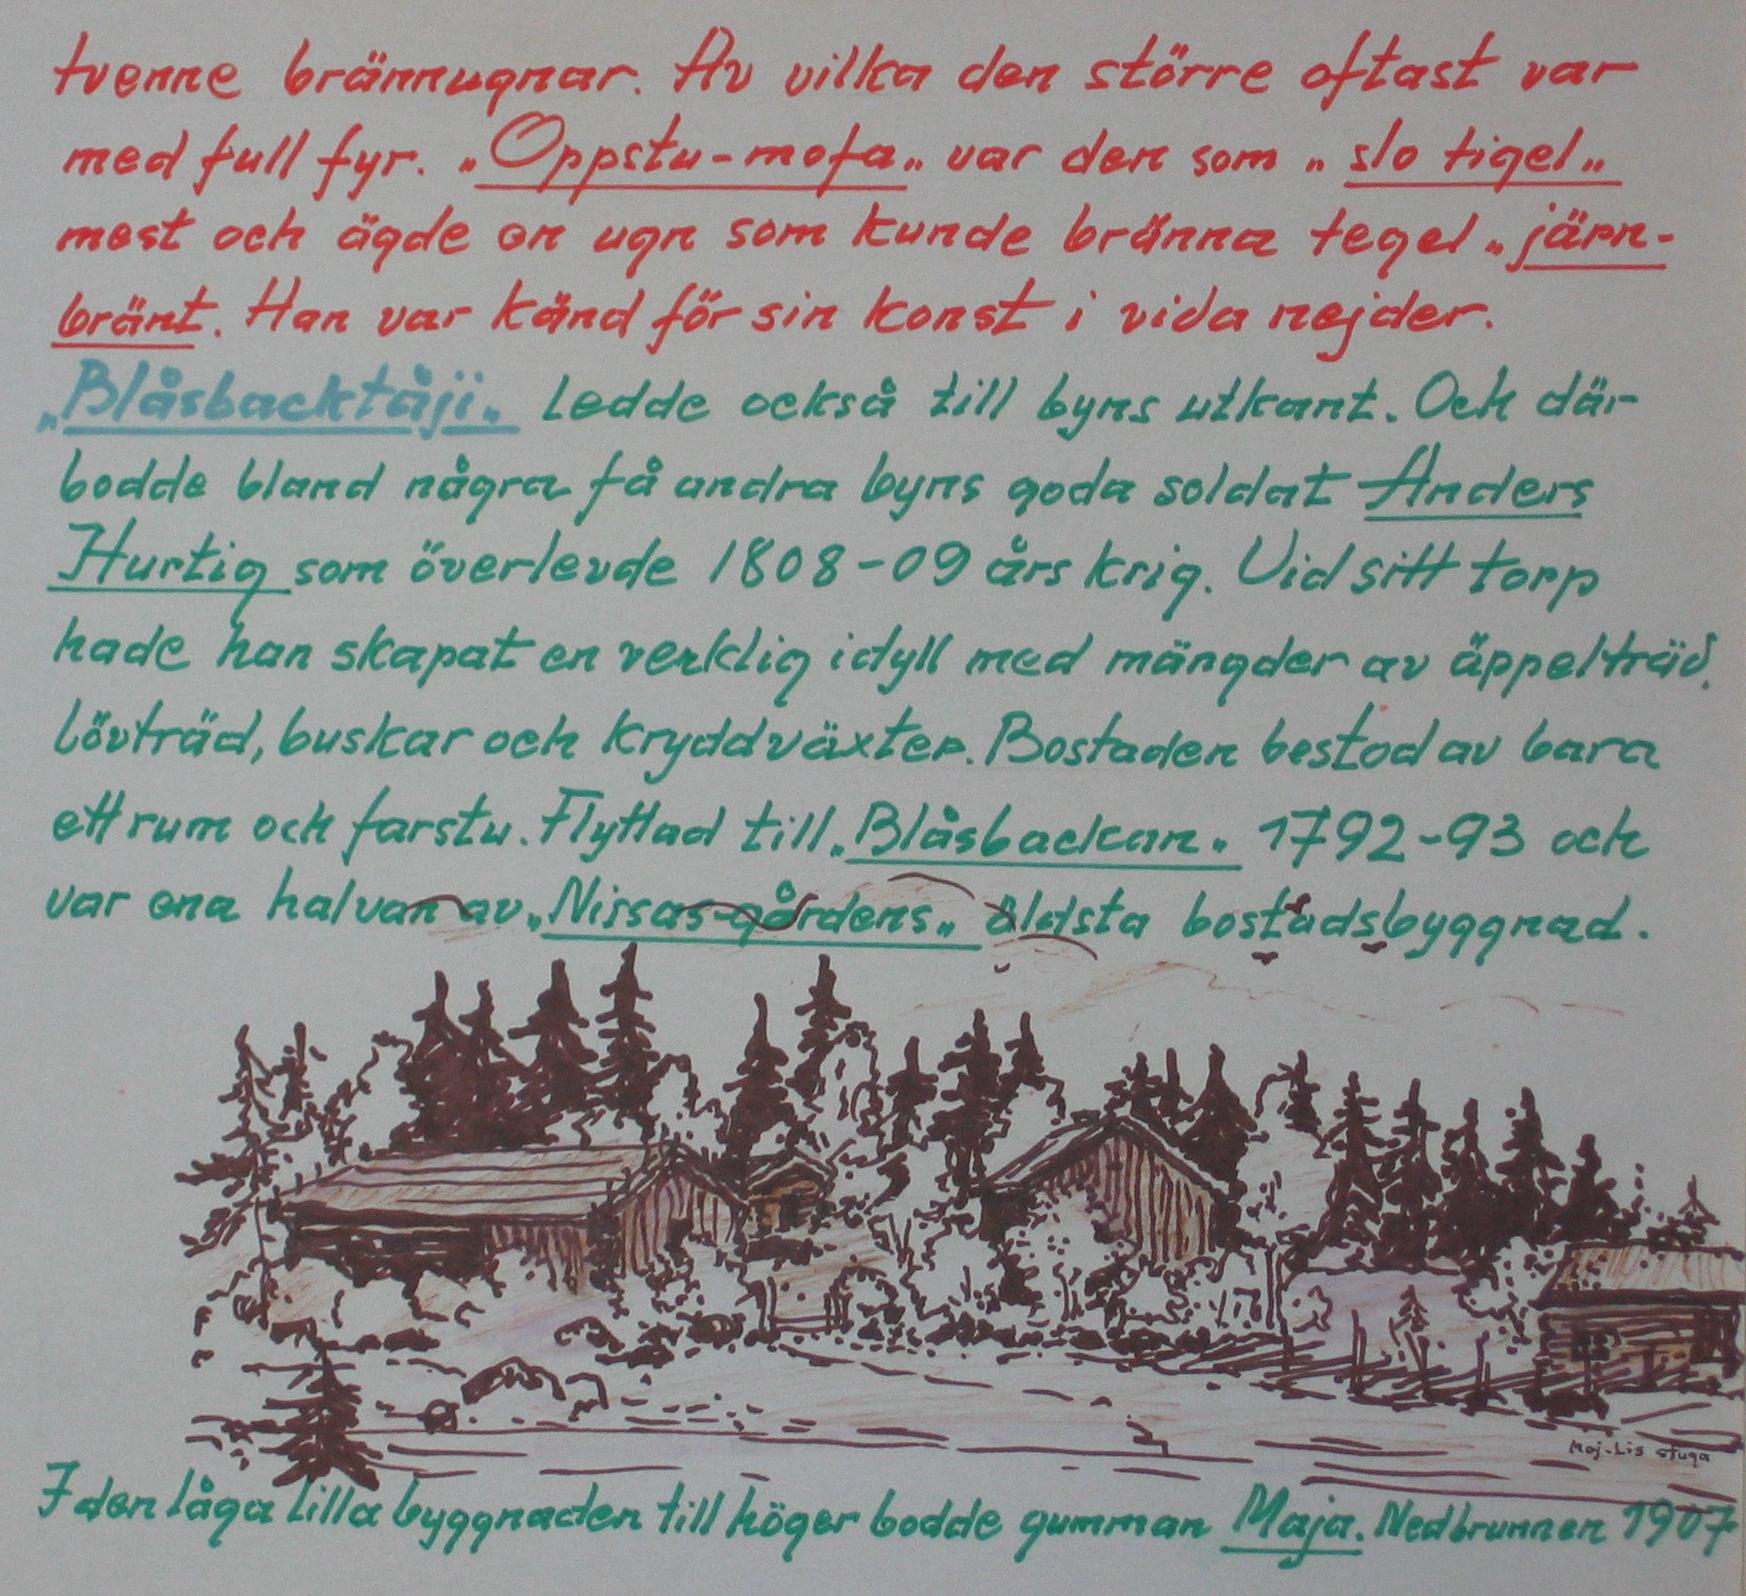 tvenne brännugnar. Av vilka den större oftast var
med full fyr. „Oppstu-mofa„ var den som „slo tigel„
mest och ägde en ugn som kunde bränna tegel „järn-
bränt. Han var känd för sin konst i vida nejder.
„Blåsbacktåji„ ledde också till byns utkant. Och där
bodde bland några få andra byns goda soldat Anders
Hurtig som överlevde 1808-09 års krig. Vid sitt torp
hade han skapat en verklig idyll med mängder av äppelträd,
lövträd, buskar och kryddväxter. Bostaden bestod av bara
ett rum och farstu. Flyttad till „Blåsbackan„ 1792-93 och
var ena halvan av „Nissas-gårdens„ äldsta bostadsbyggnad.
Maj-Lis stuga
I den låga lilla byggnaden till höger bodde gumman Maja. Nedbrunnen 1907